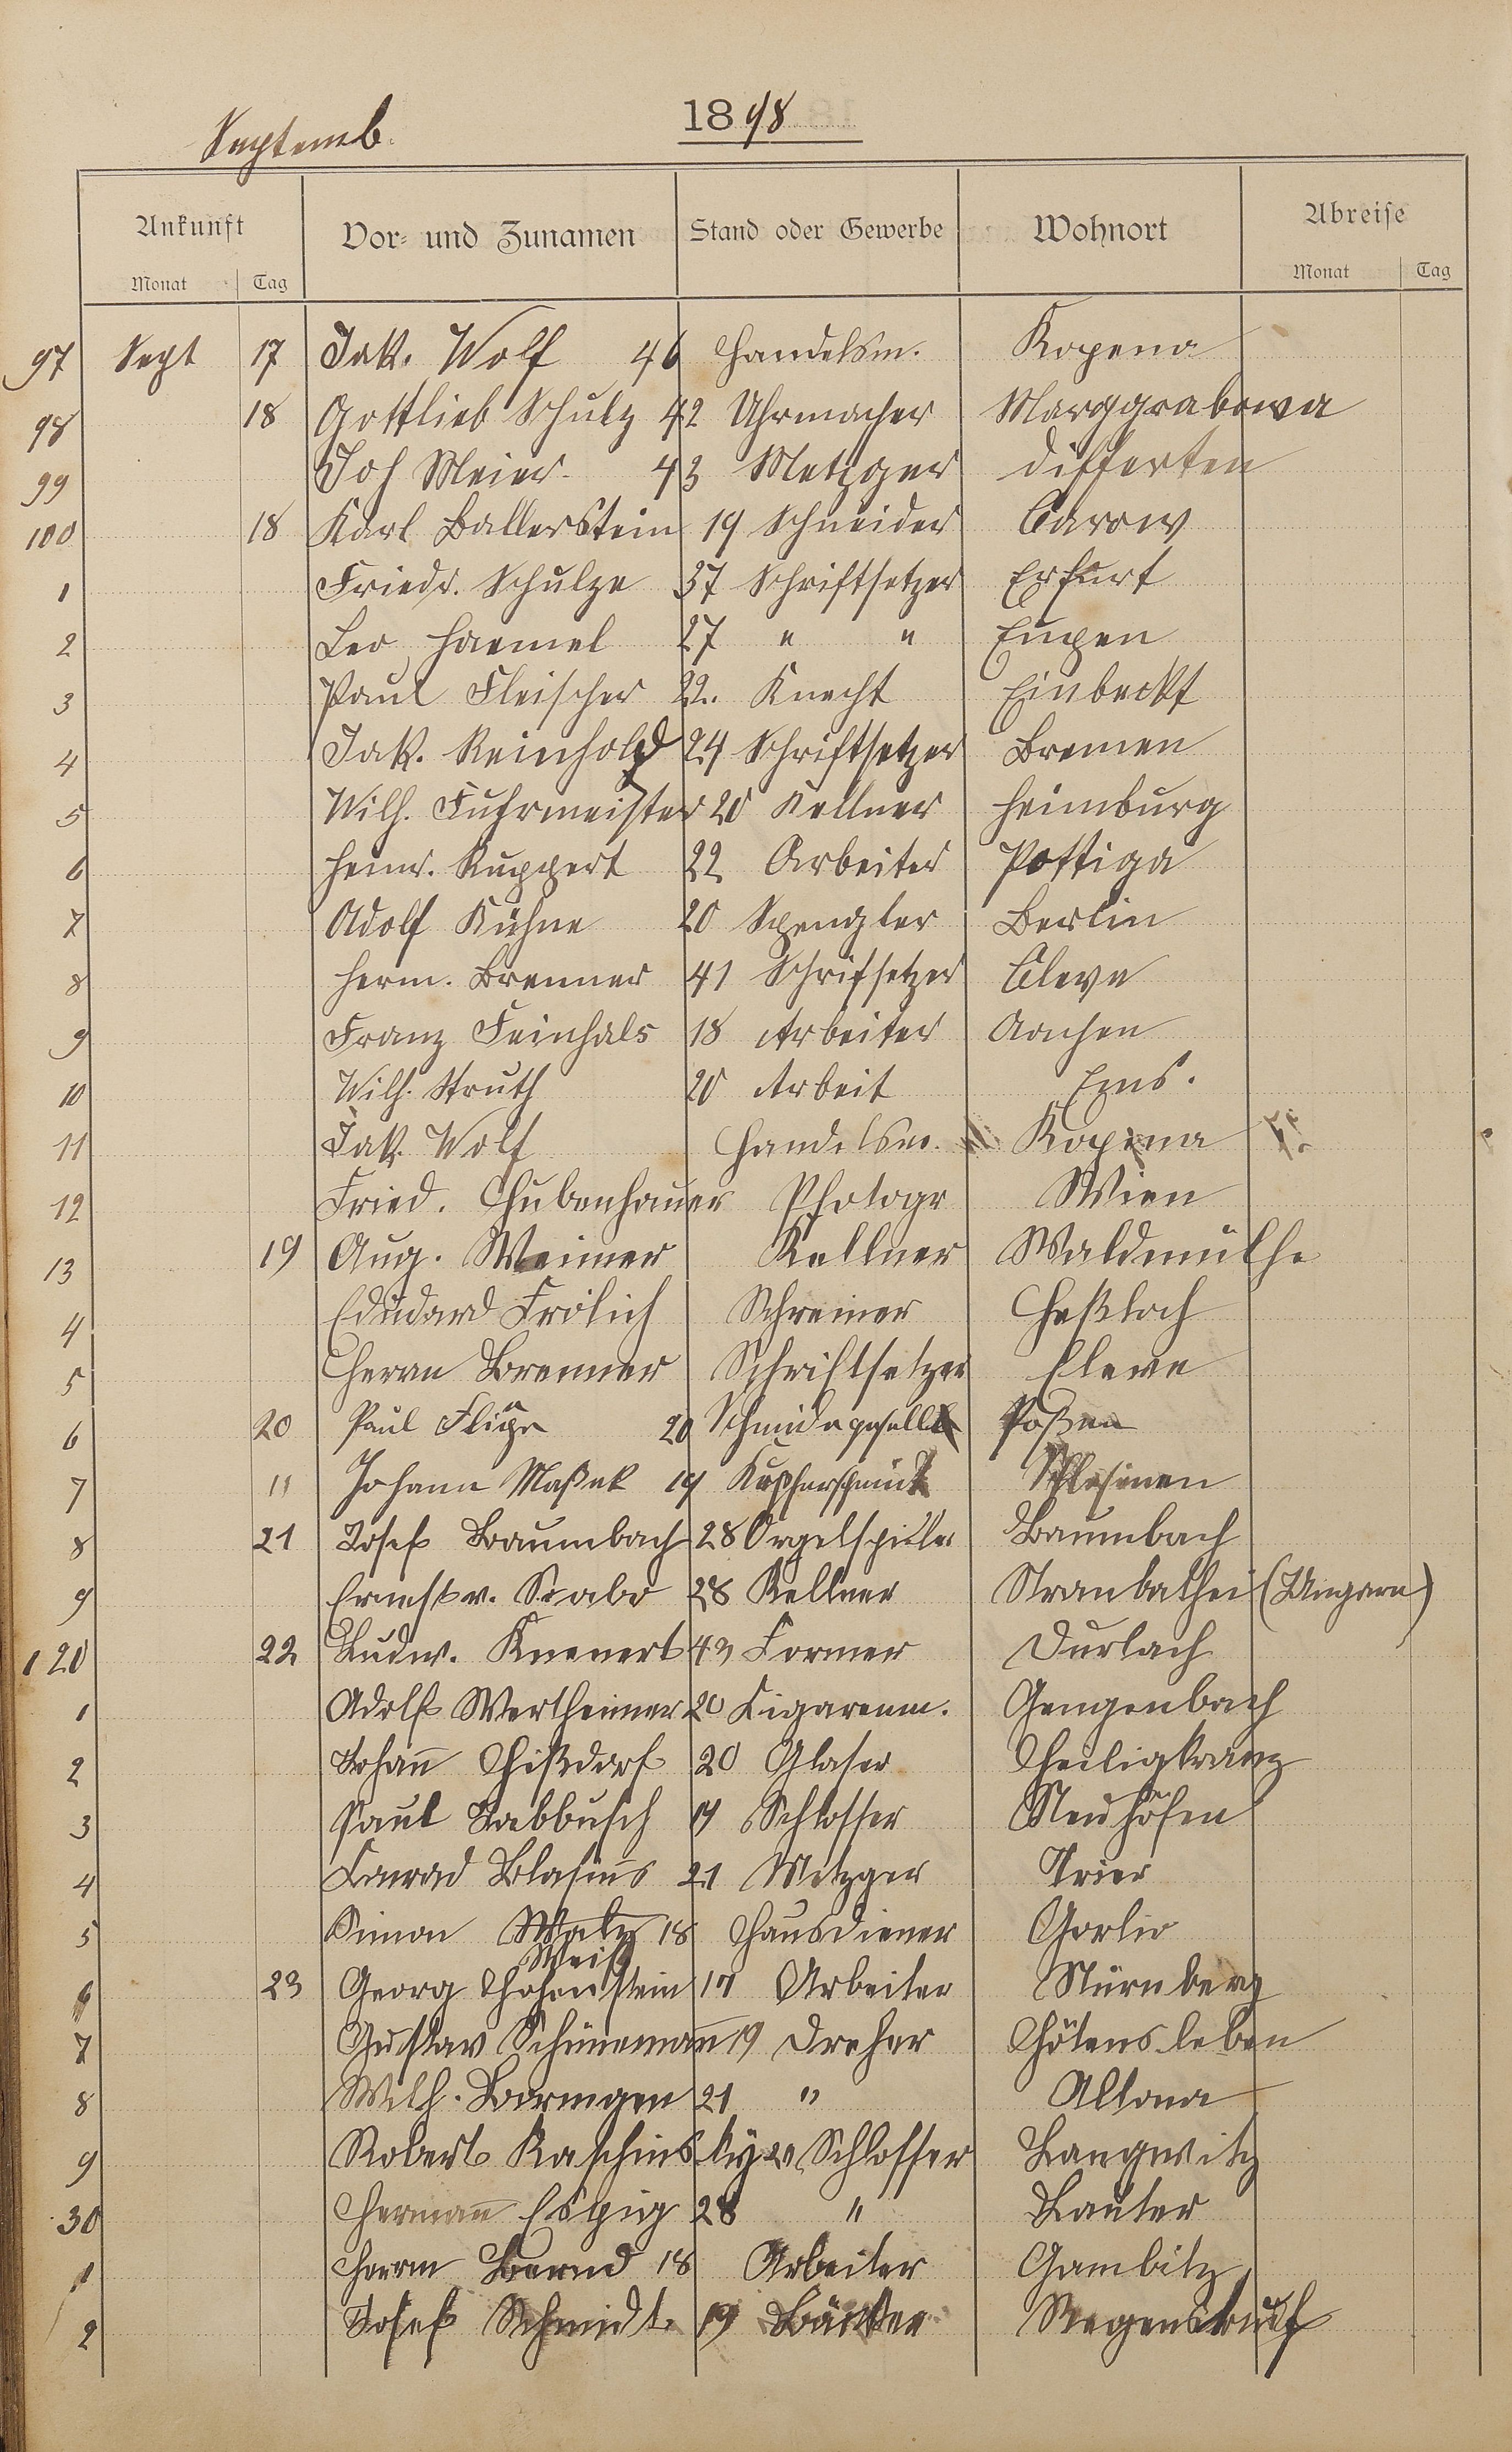 Septemb. 1898
Ankunft Vor- und Zunamen Stand oder Gewerbe Wohnort Abreise
Monat Tag Monat Tag
97 Sept 17 Jak. Wolf 46 Handelsm. Kopena
98 18 Gottlieb Schulz 42 Uhrmacher Marggrabowa
99 Joh Meier 43 Metzger Differten
100 18 Karl Ballerstein 19 Schneider Carow
1 Friedr. Schulze 37 Schriftsetzer Erfurt
2 Leo Haemel 27 " " Eupen
3 Paul Fleischer 22. Knecht Einbeckt
4 Jak. Reinhold 24 Schriftsetzer Bremen
5 Wilh. Fuhrmeister 20 Kellner Heimburg
6 Heinr. Ruppert 22 Arbeiter Pottiga
7 Adolf Kühne 20 Spengler Berlin
8 Herm. Brenner 41 Schrifsetzer Cleve
9 Franz Feinhals 18 Arbeiter Aachen
10 Wilh. Struth 20 Arbeit Ems.
11 Jak. Wolf Handelsm. Kopena
12 Fried. Hubenhauer Photogr Wien
13 19 Aug. Weimer Kellner Waldmülhe
4 Eduard Frölich Schreiner Haßloch
5 Herm Brenner Schriftsetzer Cleve
6 20 Paul Flüge 20 Schmidegeselle Poßen
7 11 Johann Maßek 19 Kupferschmidt Schlesinen
8 21 Josef Baumbach 28 Orgelspieler Baumbach
9 Ernest v. Szabo 28 Kellner (Ungarn)
120 22 Ludw. Knenert 43 Former Durlach
1 Adolf Wertheimer 20 Cigarenm. Gengenbach
2 Johañ Hißdorf 20 Glaser Heiligkranz
3 Paul Tabbusch 19 Schlosser Neuhöfen
4 Conrad Blasius 21 Metzger Trier
5 Simon 18 Hausdiener Gorlio
Weiß
6 23 Georg Hohenstein 17 Arbeiter Nürnberg
7 Gustav Schünemañ 19 Dreher Hötensleben
8 Wilh. Barmgen 21 " Altona
9 Robert Raschinsky 20 Schlosser Langwitz
30 Hermañ Espig 28 " Lauter
1 Herm Bernd 18 Arbeiter Gambitz
2 Josef Schmidt 19 Bäcker